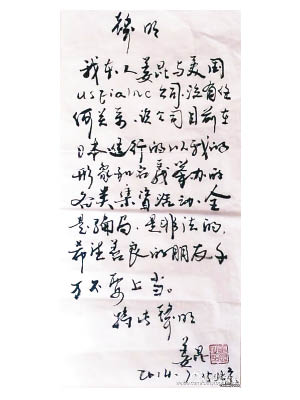 聲明
我本人姜昆与美国
usFia inc公司.没有任
何关系.该公司目前在
日本进行的以我的
形象和名義举办的
各类集资活动.全
是骗局.是非法的.
希望善良的朋友千
万不要上当。
特此聲明
姜昆
2014.9.